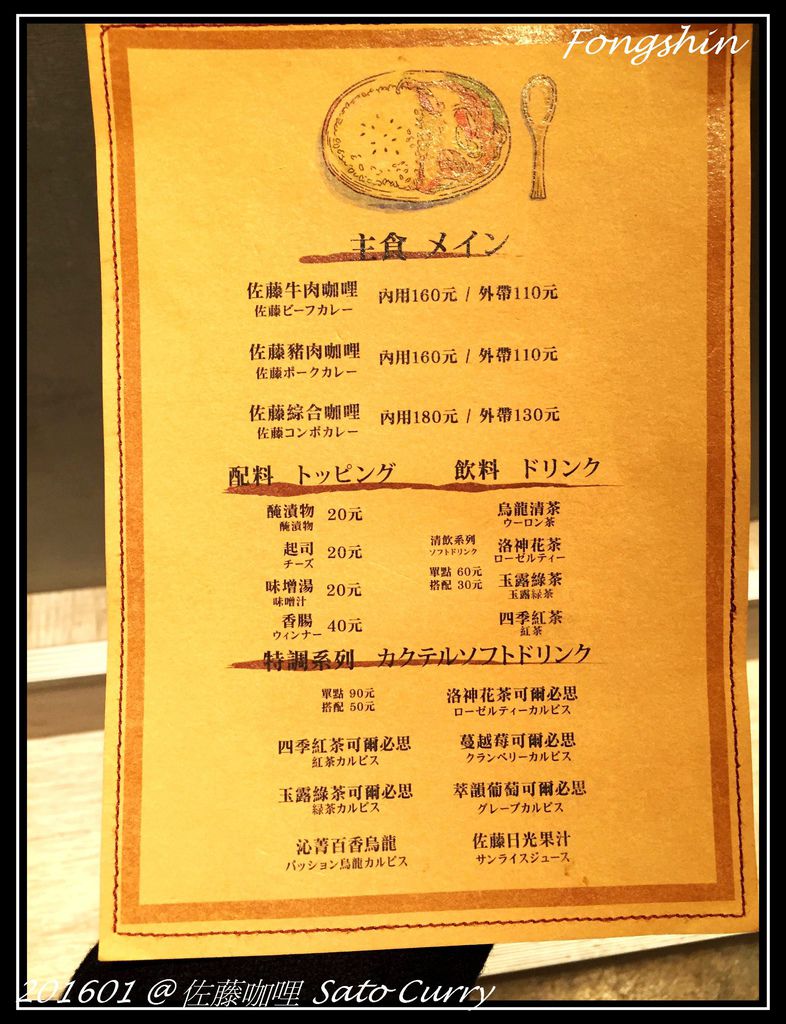 Fongshin
主食 メイン
佐藤牛肉咖哩 內用160元 / 外帶110元
佐藤ビーフカレー
佐藤豬肉咖哩 內用160元 / 外帶110元
佐藤ポークカレー
佐藤綜合咖哩 內用180元 / 外帶130元
佐藤コンボカレー
配料 トッピング
醃漬物 20元
醃漬物
起司 20元
チーズ
味增湯 20元
味噌汁
香腸 40元
ウィンナー
飲料 ドリンク
清飲系列
ソフトドリンク
單點 60元
搭配 30元
烏龍清茶
ウーロン茶
洛神花茶
ローゼルティー
玉露綠茶
玉露緑茶
四季紅茶
紅茶
特調系列 カクテルソフトドリンク
單點 90元
搭配 50元
洛神花茶可爾必思
ローゼルティーカルピス
四季紅茶可爾必思
紅茶カルピス
蔓越莓可爾必思
クランベリーカルピス
玉露綠茶可爾必思
緑茶カルピス
萃韻葡萄可爾必思
グレープカルピス
沁菁百香烏龍
パッション烏龍カルピス
佐藤日光果汁
サンライスジュース
201601 @ 佐藤咖哩 Sato Curry